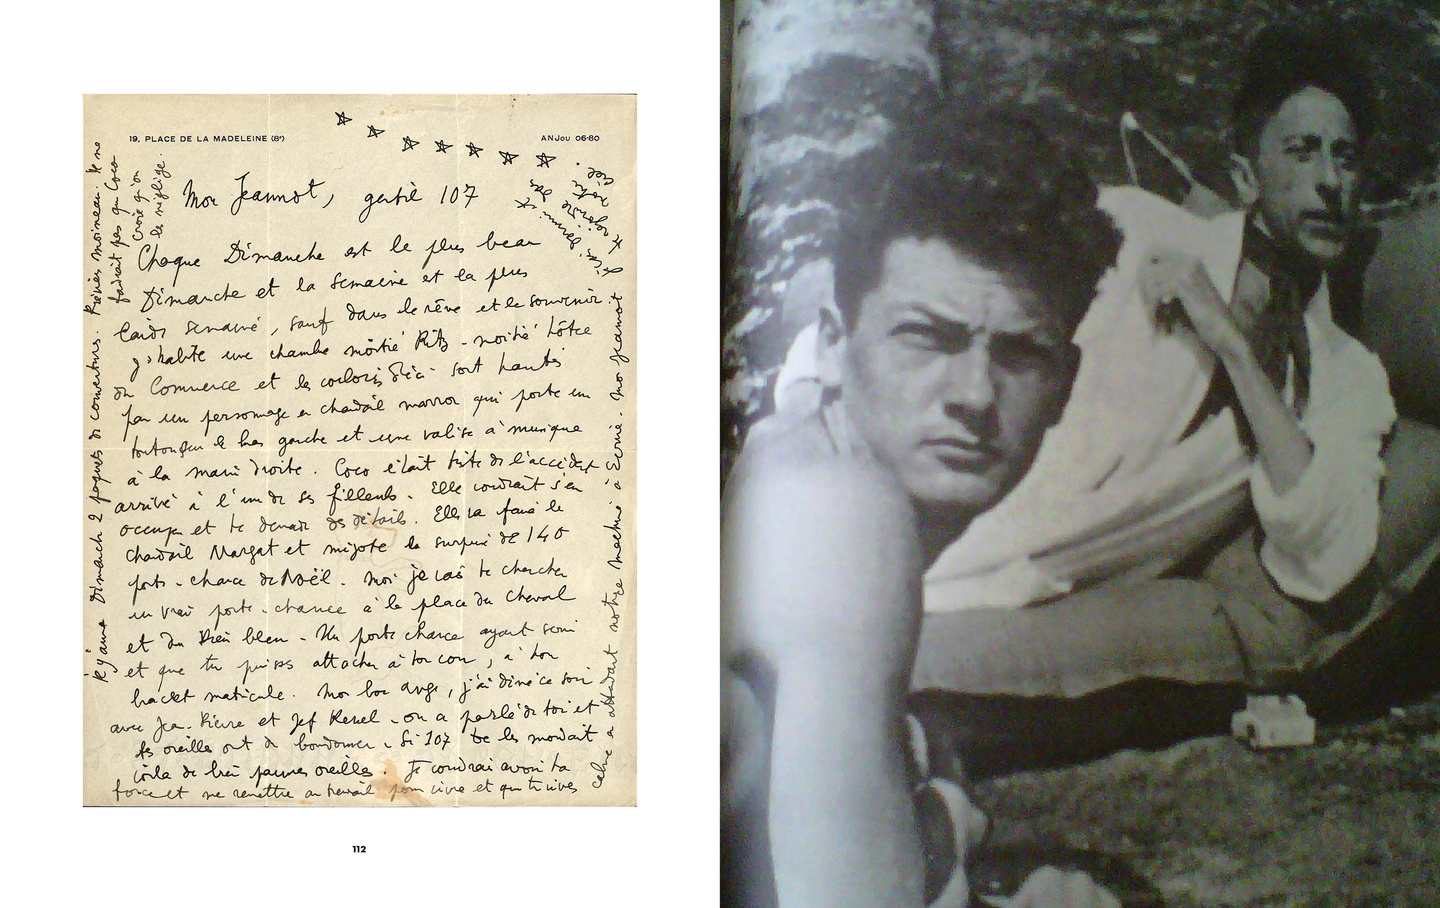 19, PLACE DE LA MADELEINE (8e)
ANJou 06-80
Mon Jeannot, gentil 107
Chaque Dimanche est le plus beau
Dimanche et la semaine et la plus
semaine, sauf dans le rêve et le souvenir.
J'habite une chambre moitié Ritz - moitié hôtel
du Commerce et les couloirs sont hantés
par un personnage en chandail marron qui porte un
le bras gauche et une valise à musique
à la main droite. Coco était triste de l'accident
arrivé à l'un de ses filleuls. Elle voudrait s'en
occuper et te demande des détails. Elle va faire le
chandail Margat et mijote la surprise de 140
porte-chance de Noël. Moi je vais te chercher
un vrai porte-chance à la place du cheval
et du bleu - Un porte chance ayant servi
et que tu puisses attacher à ton cou, à ton
bracelet matricule. Mon bon ange, j'ai dîné ce soir
avec Jean-Pierre et Jef Kessel - on a parlé de toi et
tes oreilles ont dû bourdonner. Si 107 te les mordait
voilà de bien jaunes oreilles. Je voudrai avoir ta
force et me remettre au travail pour vivre et que tu vives
calme en attendant notre
Dimanche 2 paquets de couvertures. Préviens moineau. Il ne
faudrait pas que Coco
croie qu'on
le néglige.
112